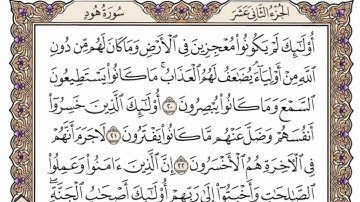 الجزء الثاني عشر سورة هود
أُو۟لَٰٓئِكَ لَمْ يَكُونُوا۟ مُعْجِزِينَ فِى ٱلْأَرْضِ وَمَا كَانَ لَهُم مِّن دُونِ
ٱللَّهِ مِنْ أَوْلِيَآءَ ۘ يُضَٰعَفُ لَهُمُ ٱلْعَذَابُ ۚ مَا كَانُوا۟ يَسْتَطِيعُونَ
ٱلسَّمْعَ وَمَا كَانُوا۟ يُبْصِرُونَ ٢٠ أُو۟لَٰٓئِكَ ٱلَّذِينَ خَسِرُوٓا۟
أَنفُسَهُمْ وَضَلَّ عَنْهُم مَّا كَانُوا۟ يَفْتَرُونَ ٢١ لَا جَرَمَ أَنَّهُمْ
فِى ٱلْءَاخِرَةِ هُمُ ٱلْأَخْسَرُونَ ٢٢ إِنَّ ٱلَّذِينَ ءَامَنُوا۟ وَعَمِلُوا۟
ٱلصَّٰلِحَٰتِ وَأَخْبَتُوٓا۟ إِلَىٰ رَبِّهِمْ أُو۟لَٰٓئِكَ أَصْحَٰبُ ٱلْجَنَّةِ ۖ